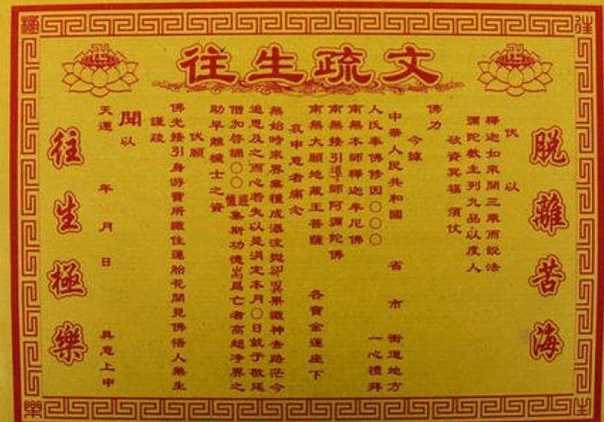 往生疏文
脫離苦海
伏以
釋迦如來開三乘而説法
彌陀教主列九品以度人
欲資冥福須仗
佛力
今據
中華人民共和國 省 市 街道地方
人氏奉佛修因〇〇〇 一心禮拜
南無本師釋迦牟尼佛
南無接引導師阿彌陀佛
南無大願地藏王菩薩 各寶金蓮座下
哀申意者痛念
無始時來界業種成瀑流
追思及之而心若失以是涓定本月〇日就于敬延
僧加啓誦〇〇 集斯功德爲亡者高超淨界之
助早離穢土之資
伏願
佛光接引身游寶所識住蓮胎花開見佛悟人無生
謹疏
聞以
天運 年 月 日 具意上申
往生極樂